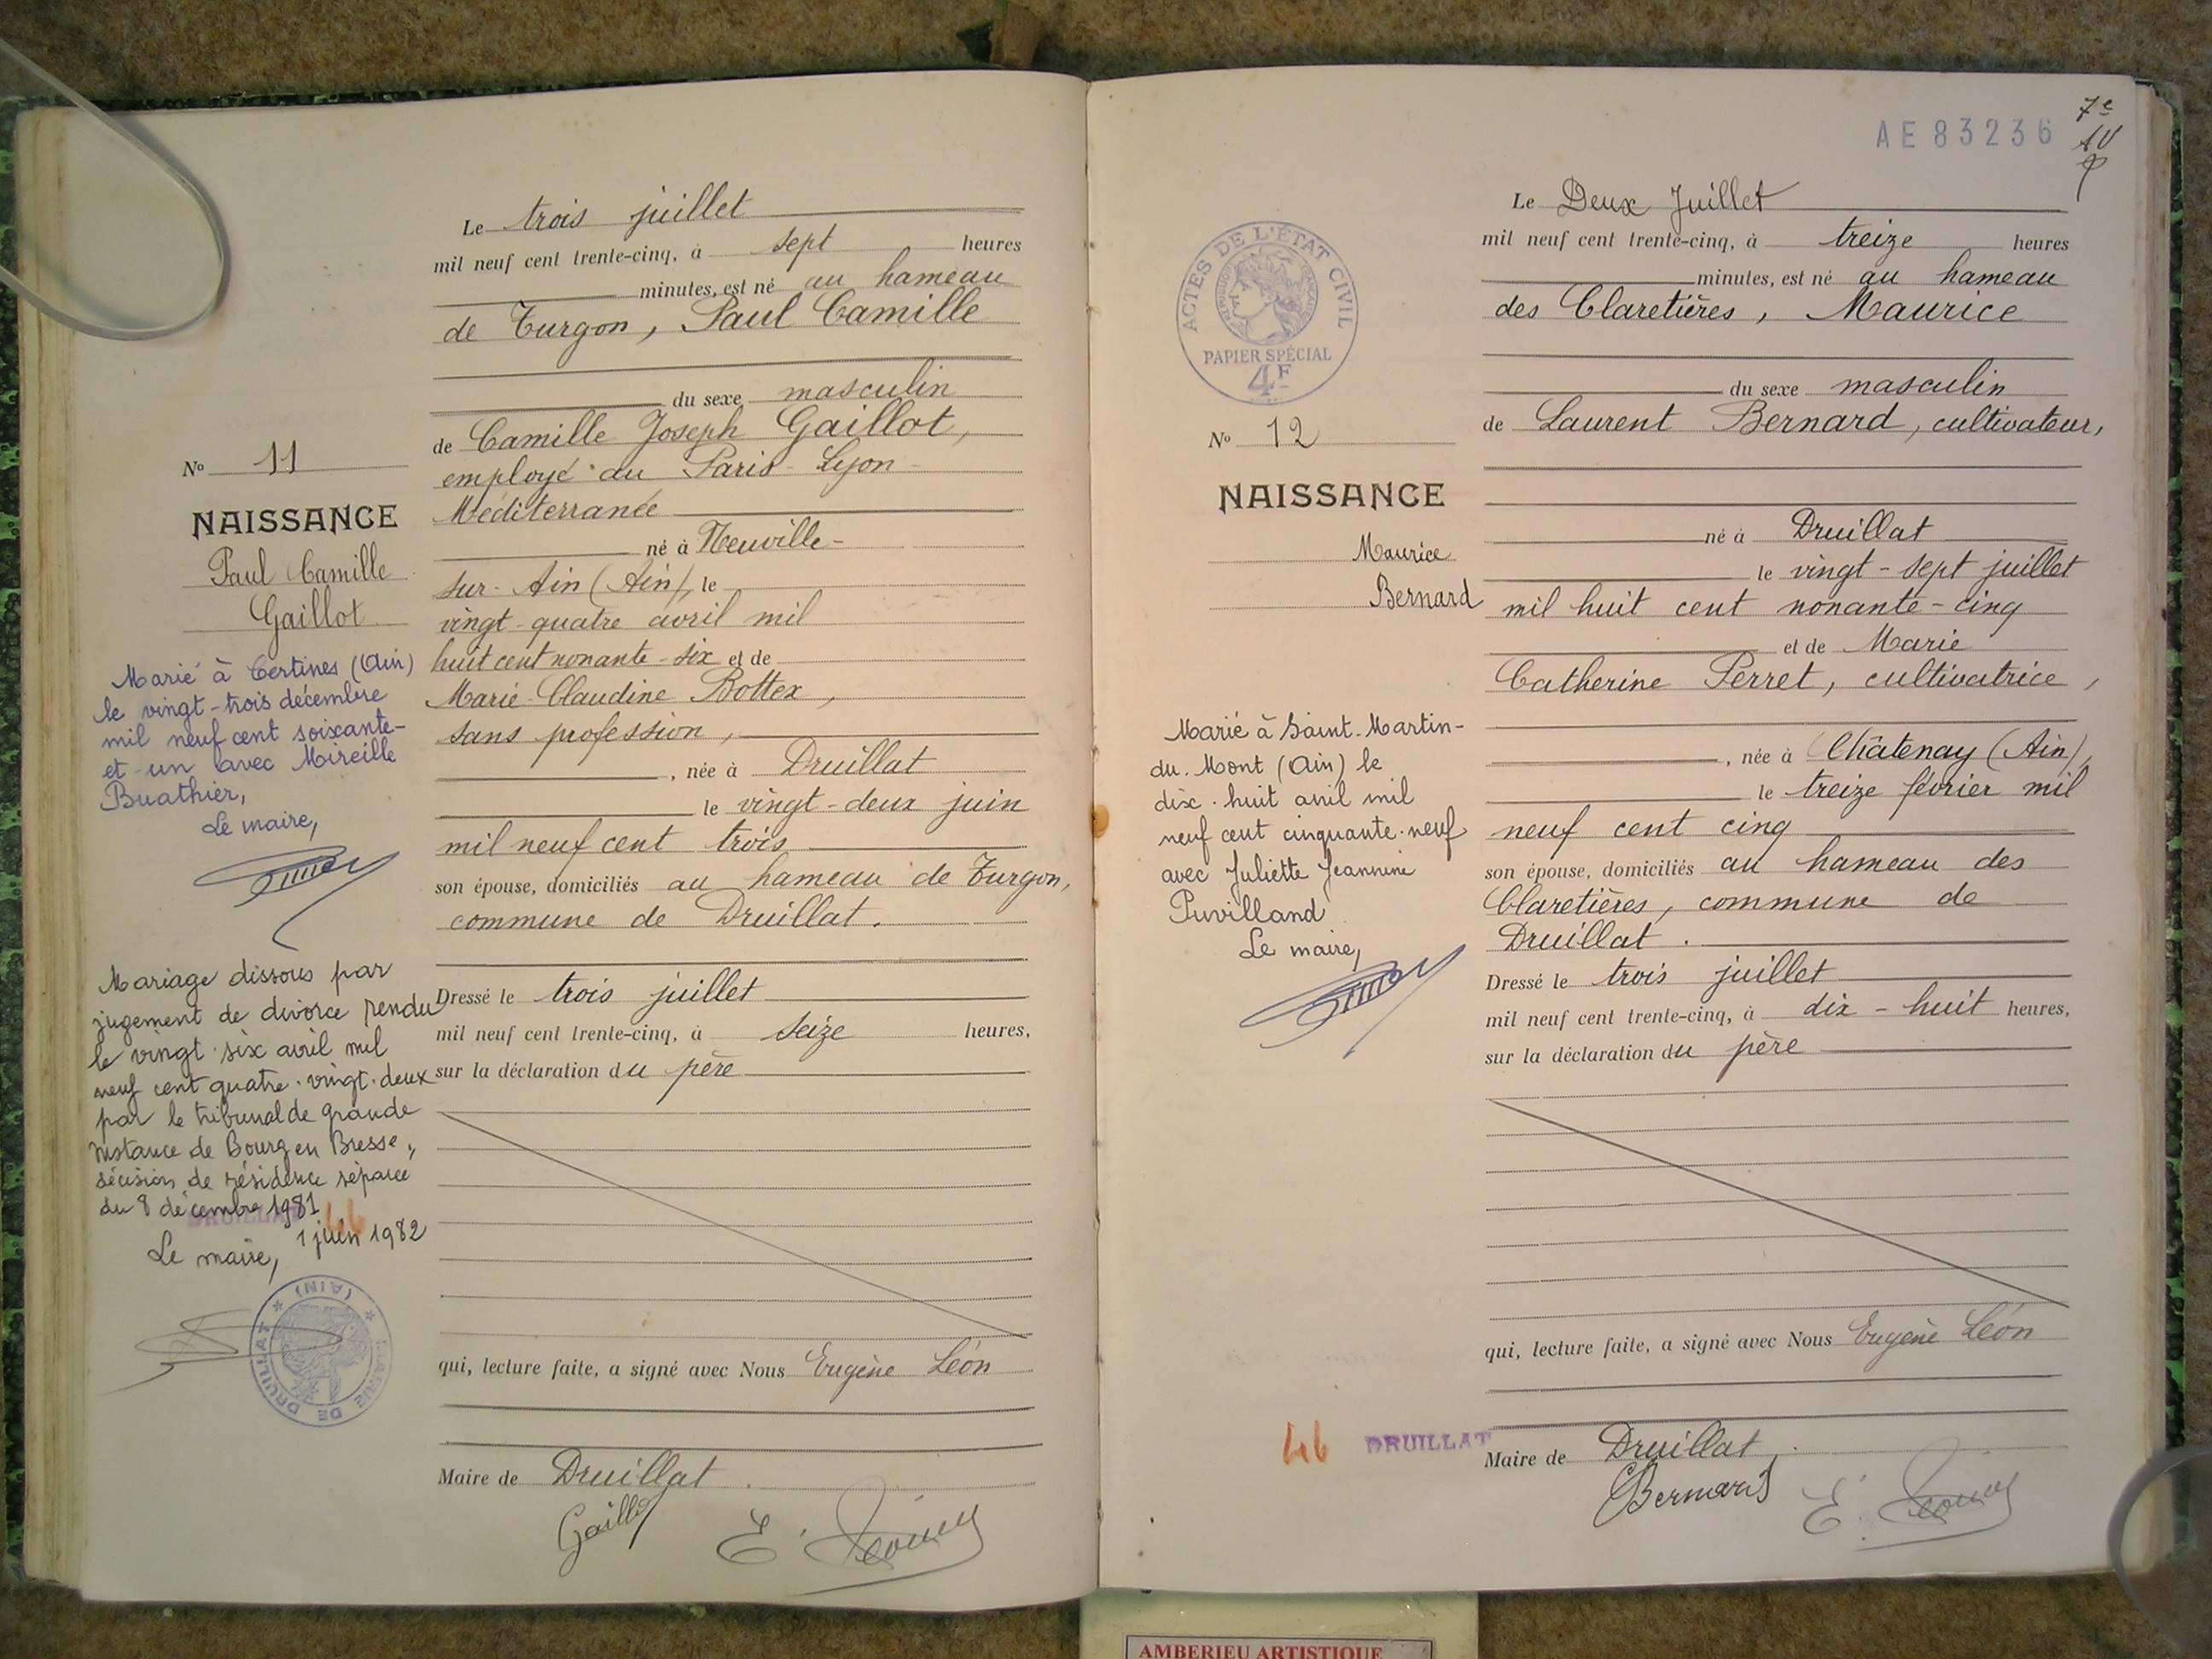 Le trois juillet
mil neuf cent trente-cinq, à sept heures
minutes, est né au hameau
de Turgon, Paul Camille
du sexe masculin
de Camille Joseph Gaillot,
employé au Paris-Lyon-
Méditerranée
né à Neuville-
sur-Ain (Ain), le
vingt-quatre avril mil
huit cent nonante-six et de
Marie-Claudine Bottex,
sans profession,
, née à Druillat
le vingt-deux juin
mil neuf cent trois
son épouse, domiciliés au hameau de Turgon,
commune de Druillat.
Dressé le trois juillet
mil neuf cent trente-cinq, à seize heures,
sur la déclaration du père
qui, lecture faite, a signé avec Nous Eugène Léon
Maire de Druillat.
Gaillot
No 11
NAISSANCE
Paul Camille
Gaillot
Marié à Certines (Ain)
le vingt-trois décembre
mil neuf cent soixante-
et-un avec Mireille
Buathier,
Le maire,
Mariage dissous par
jugement de divorce rendu
le vingt-six avril mil
neuf cent quatre-vingt-deux
par le tribunal de grande
instance de Bourg en Bresse,
décision de résidence séparée
du 8 décembre 1981
DRUILLAT 46
1 juin 1982
Le maire,
MAIRIE DE DRUILLAT * (AIN) *
AE 83236
7e
Le Deux Juillet
mil neuf cent trente-cinq, à treize heures
minutes, est né au hameau
des Claretières, Maurice
du sexe masculin
de Laurent Bernard, cultivateur,
né à Druillat
le vingt-sept juillet
mil huit cent nonante-cinq
et de Marie
Catherine Perret, cultivatrice,
, née à Châtenay (Ain),
le treize février mil
neuf cent cinq
son épouse, domiciliés au hameau des
Claretières, commune de
Druillat.
Dressé le trois juillet
mil neuf cent trente-cinq, à dix-huit heures,
sur la déclaration du père
qui, lecture faite, a signé avec Nous Eugène Léon
Maire de Druillat.
Bernard
ACTES DE L'ÉTAT CIVIL
PAPIER SPÉCIAL
4F
No 12
NAISSANCE
Maurice
Bernard
Marié à Saint-Martin-
du-Mont (Ain) le
dix-huit avril mil
neuf cent cinquante-neuf
avec Juliette Jeannine
Puvilland
Le maire,
46 DRUILLAT
AMBERIEU ARTISTIQUE